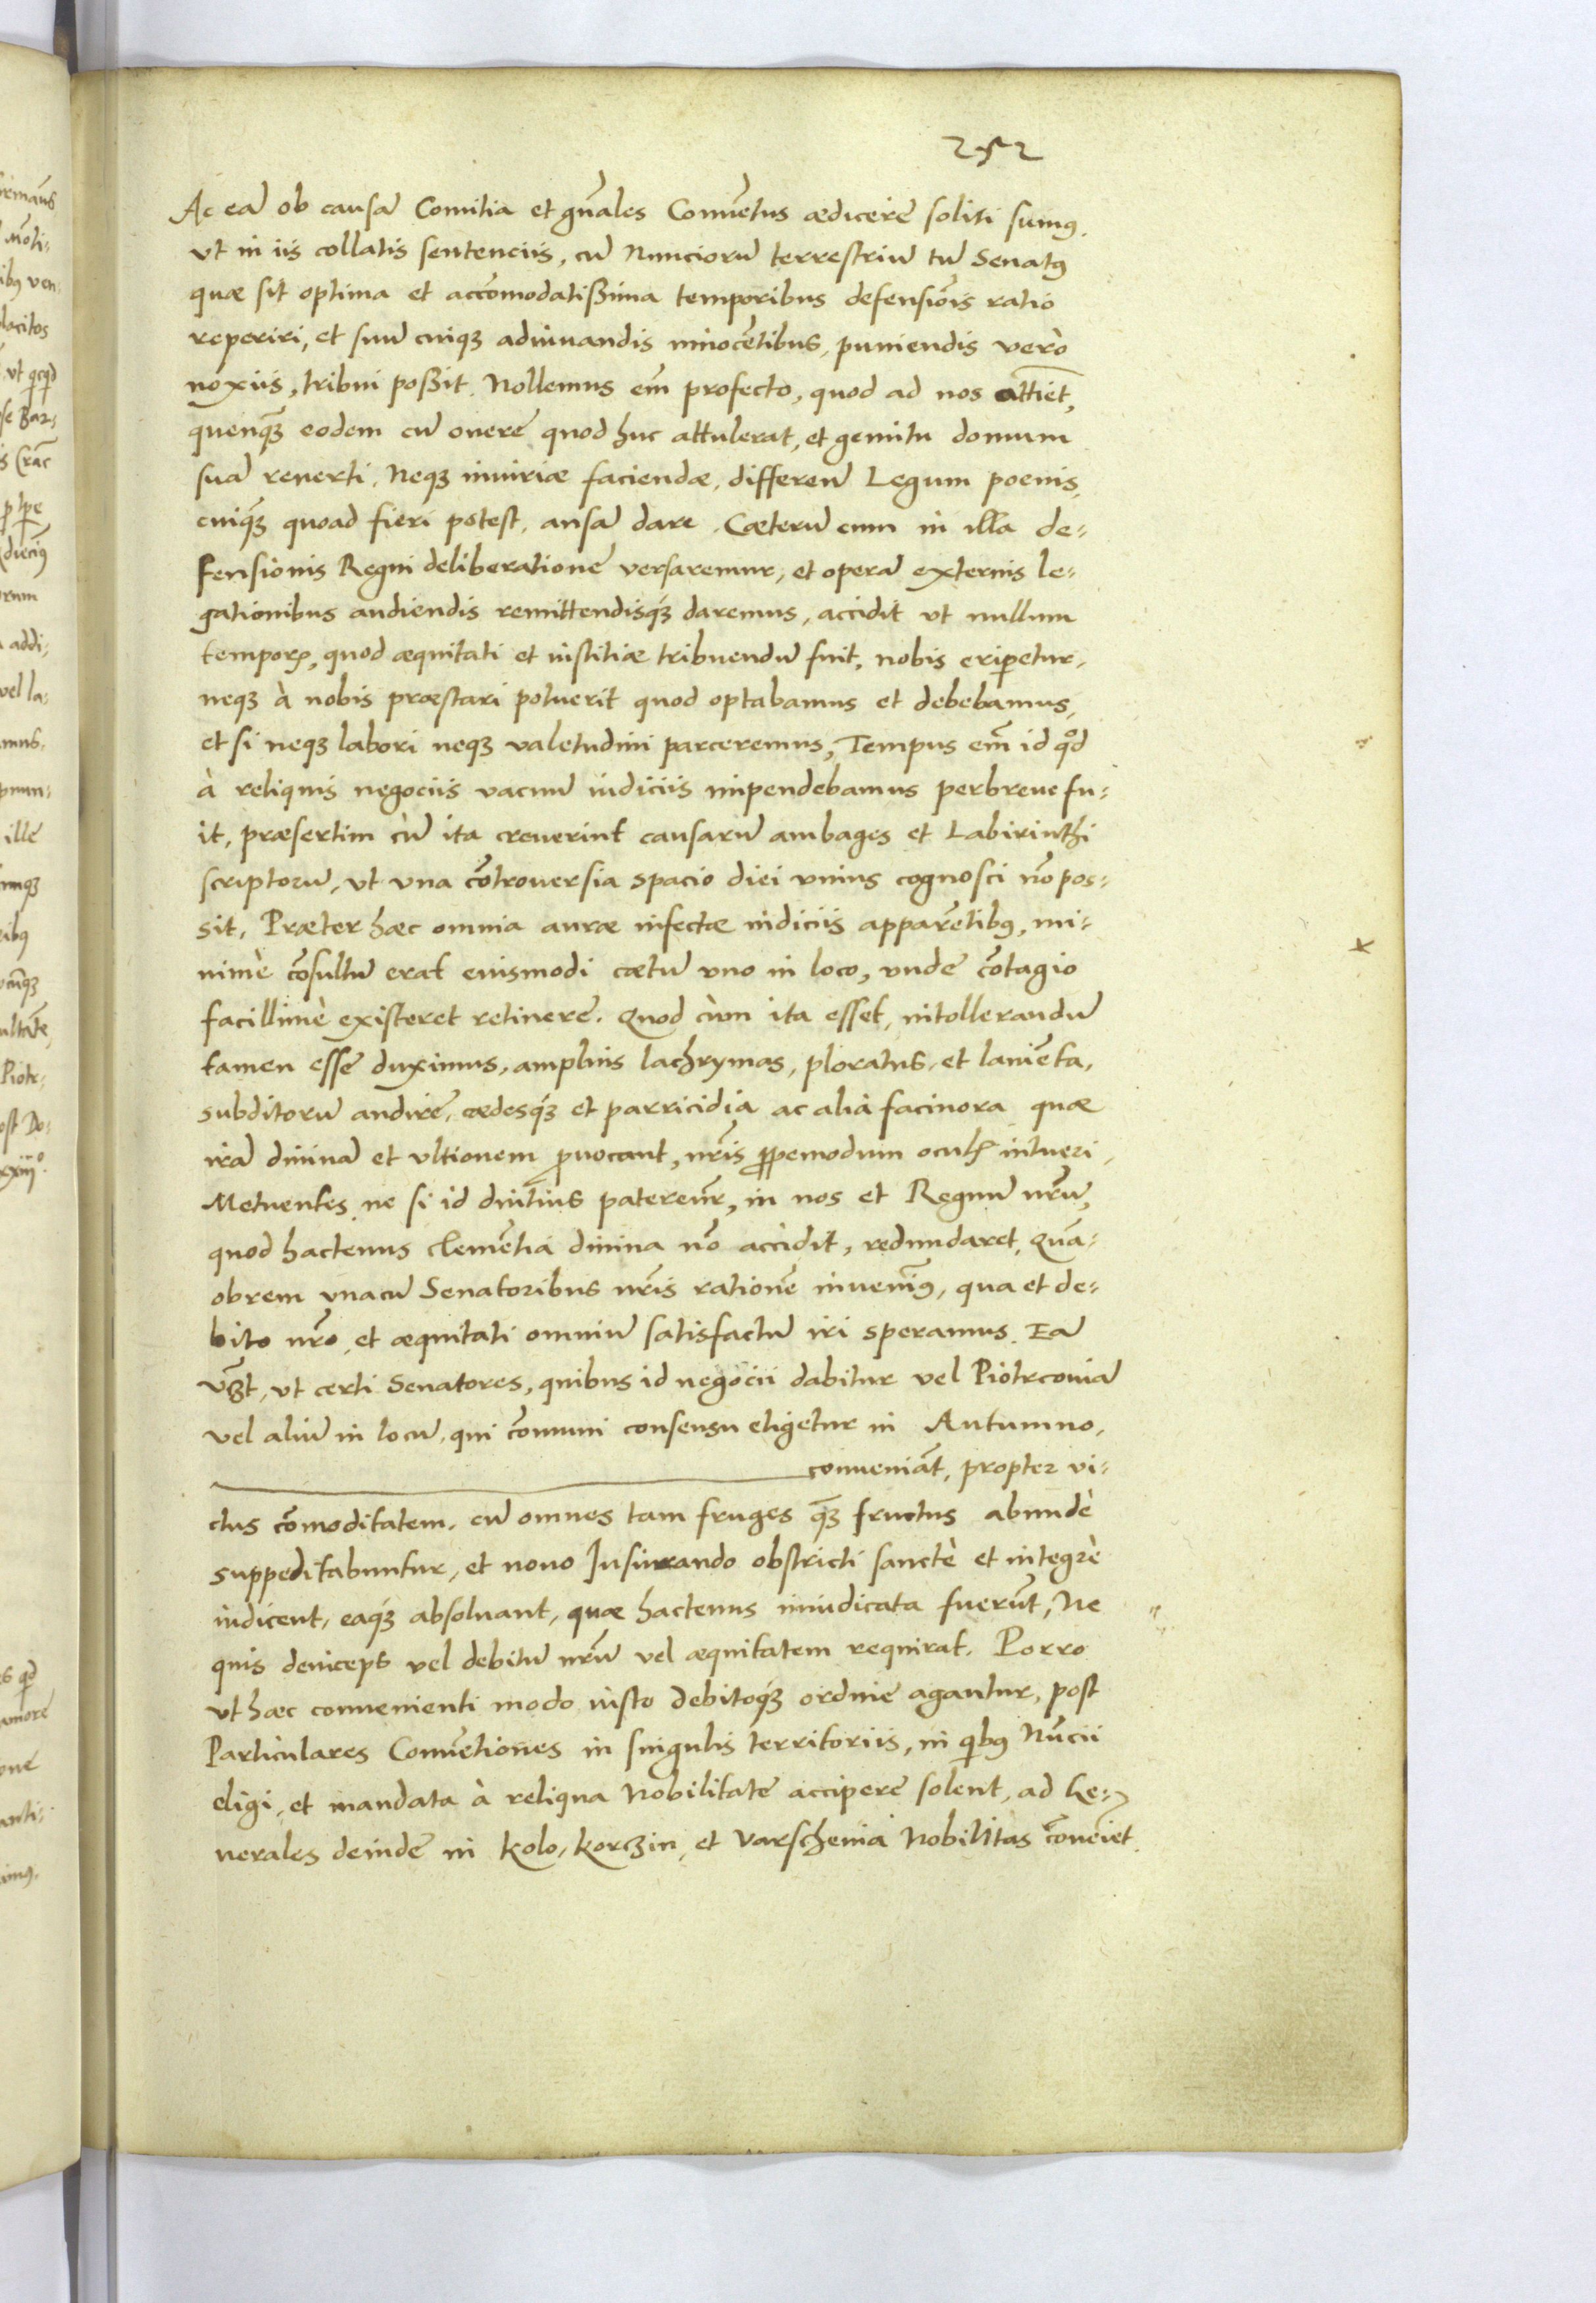 252
Ac eā ob causā Comitia et gn̄ales Conuētus ædicere soliti sumꝰ.
vt in iis collatis sentenciis, cū Nuncioruū terrestriū tū Senatꝰ
quæ sit optima et accōmodatißima temporibus defensiōis ratio
reperiri, et suū cuiqꝫ adiuuandis innocētibus, puniendis verò
noxiis, tribui poßit. Nollemus em̄ profecto, quod ad nos attīet,
quenqꝫ eodem cū onere quod huc attulerat, et gemitu domum
suā reuerti. Neqꝫ iniuriæ faciendæ, differen̄ Legum poenis,
cuiqꝫ quoad fieri potest, ansā dare. Cæterū cum in illa de-
fensionis Regni deliberatione versaremur, et operā externis le-
gationibus audiendis remittendisqꝫ daremus, accidit vt nullum
temporꝭ, quod æquitati et iustitiæ tribuendū fuit, nobis eriperetur,
neqꝫ à nobis præstari potuerit quod optabamus et debebamus,
et si neqꝫ labori neqꝫ valetudini parceremus, Tempus em̄ id qōd
à reliquis negociis vacuū iudiciis impendebamus perbreue fu-
it, præsertim cū̀ ita creuerint causarū ambages et Labirinthi
scriptorū, vt vna cōtrouersia spacio diei vnius cognosci nō pos-
sit, Præter hæc omnia auræ infectæ indiciis apparētibꝰ, mi-
nime cōsultū erat euismodi cœtū vno in loco, vnde cōtagio
facillimè existeret retinere. Quod cùm ita esset, intollerandū
tamen esse duximus, amplius lachrymas, ploratus, et lamēta,
subditorū audire, cædesqꝫ et parricidia ac alia facinora quæ
irā diuinā et vltionem ꝓuocant, nr̄is ꝓpemodum oculꝭ intueri,
Metuentes ne si id diutius pateremr̄, in nos et Regnū nr̄ū,
quod hactenus clemētia diuina nō accidit, redundaret, Quā-
obrem vnacū Senatoribus nr̄is ratione inuenimꝰ, qua et de-
bito nr̄o, et æquitati omniū satisfactū iri speramus. Ea
vꝫt, vt certi Senatores, quibus id negocii dabitur vel Piotrconiā
vel aliū in locū, qui cōmuni consensu eligetur in Autumno,
conueniāt, propter vi-
ctus cōmoditatem, cū omnes tam fruges qꝫ fructus abundè
suppeditabuntur, et nouo Iusiurando obstricti sanctè et integrè
iudicent, eaqꝫ absoluant, quæ hactenus iniudicata fuerūt, Ne
quis deinceps vel debitū nr̄ū vel æquitatem requirat. Porro
vt hæc conuenienti modo iusto debitoqꝫ ordine agantur, post
Particulares Conuētiones in singulis territoriis, in qibꝰ Nūcii
eligi, et mandata à reliqua Nobilitate accipere solent, ad Ge-
nerales deinde in Kolo, Korczin, et Varschenia Nobilitas cōueniet.